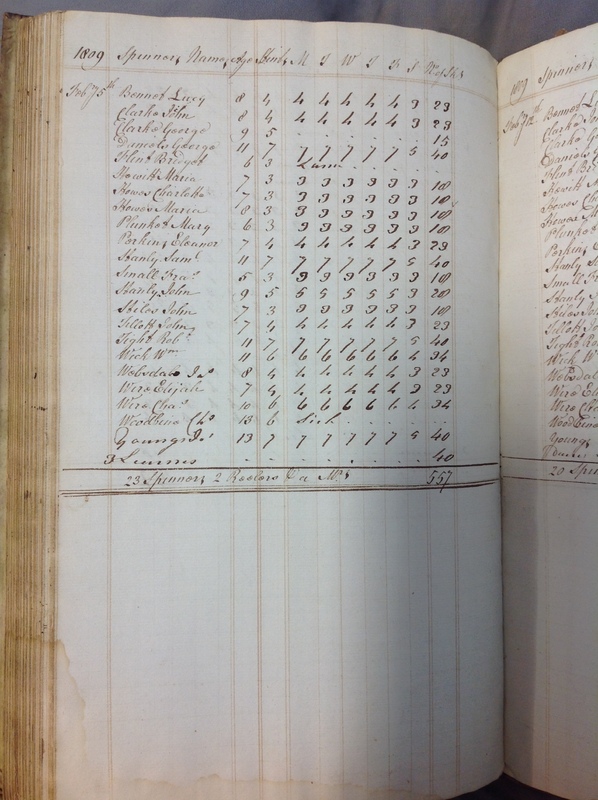 1809 Spinners Names Age Stint M T W T F S Wy Sks
Feby 5th Bennet Lucy 8 4 4 4 4 4 4 3 23
Clarke John 8 4 4 4 4 4 4 3 23
Clarke George 9 5 . . . . . . 15
Daniels George 11 7 7 7 7 7 7 5 40
Flint Bridget 6 3 . . . .
Howitt Maria 7 3 3 3 3 3 3 3 18
Howes Charlotte 7 3 3 3 3 3 3 3 18
Howes Maria 8 3 3 3 3 3 3 3 18
Plunket Mary 6 3 3 3 3 3 3 3 18
Perkins Eleanor 7 4 4 4 4 4 4 3 23
Stanly Saml 11 7 7 7 7 7 7 5 40
Small Fras 5 3 3 3 3 3 3 3 18
Stanly John 9 5 5 5 5 5 5 3 28
Stiles John 7 3 3 3 3 3 3 3 18
Tillott John 7 4 4 4 4 4 4 3 23
Tight Robt 11 7 7 7 7 7 7 5 40
Wick Wm 11 6 6 6 6 6 6 4 34
Websdale Jas 8 4 4 4 4 4 4 3 23
Wire Elijah 7 4 4 4 4 4 4 3 23
Wire Chas 10 6 6 6 6 6 6 4 34
Woodbine Chs 13 6 Sick . . . .
Youngs Js 13 7 7 7 7 7 7 5 40
3 . . . . . . 40
23 Spinners 2 Reelers & a Mrs 557
1809 Spinners
Feby 12th Bennet Lucy
Clarke
Clarke G
Daniels
Flint B
Howitt M
Howes
Howes Ma
Plunket
Perkins
Stanly S
Small F
Stanly
Stiles Jo
Tillott
Tight Ro
Wick W
Websdal
Wire El
Wire Cha
Woodbine
Youngs
20 Spin